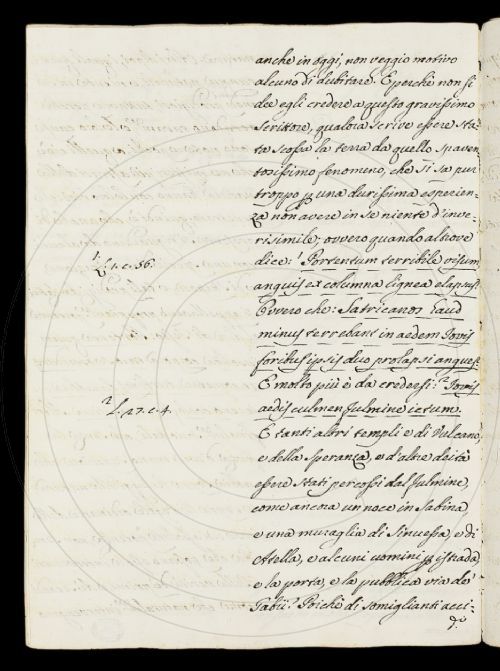 anche in oggi, non veggio motivo
alcuno di dubitare. E perchè non si
dee egli credere a questo gravissimo
Scrittore, qualora scrive essere sta-
ta scossa la terra da quello spaven-
tosissimo fenomeno, che si sa pur
troppo p una durissima esperien-
za non avere in se niente d'inve-
risimile; ovvero quando altrove
dice: ¹ Portentum terribile visum
1. L. 1. c. 56.
anguis ex columna lignea elapsus
Ovvero che: Satricanos haud
minus terrebant in aedem Jovis
foribus ipsis duo prolapsi angues.
E molto più è da credersi: ² Jovis
2. L. 27. c. 4.
aedis culmen fulmine ictum.
E tanti altri templi e di Vulcano,
e della Speranza, e d'altre deità
essere stati percossi dal fulmine,
come ancora un noce in Sabina,
e una muraglia di Sinuessa, e di
Atella, e alcuni uomini p istrada,
e la porta, e la pubblica via de'
Gabii? Poichè di somiglianti acci-